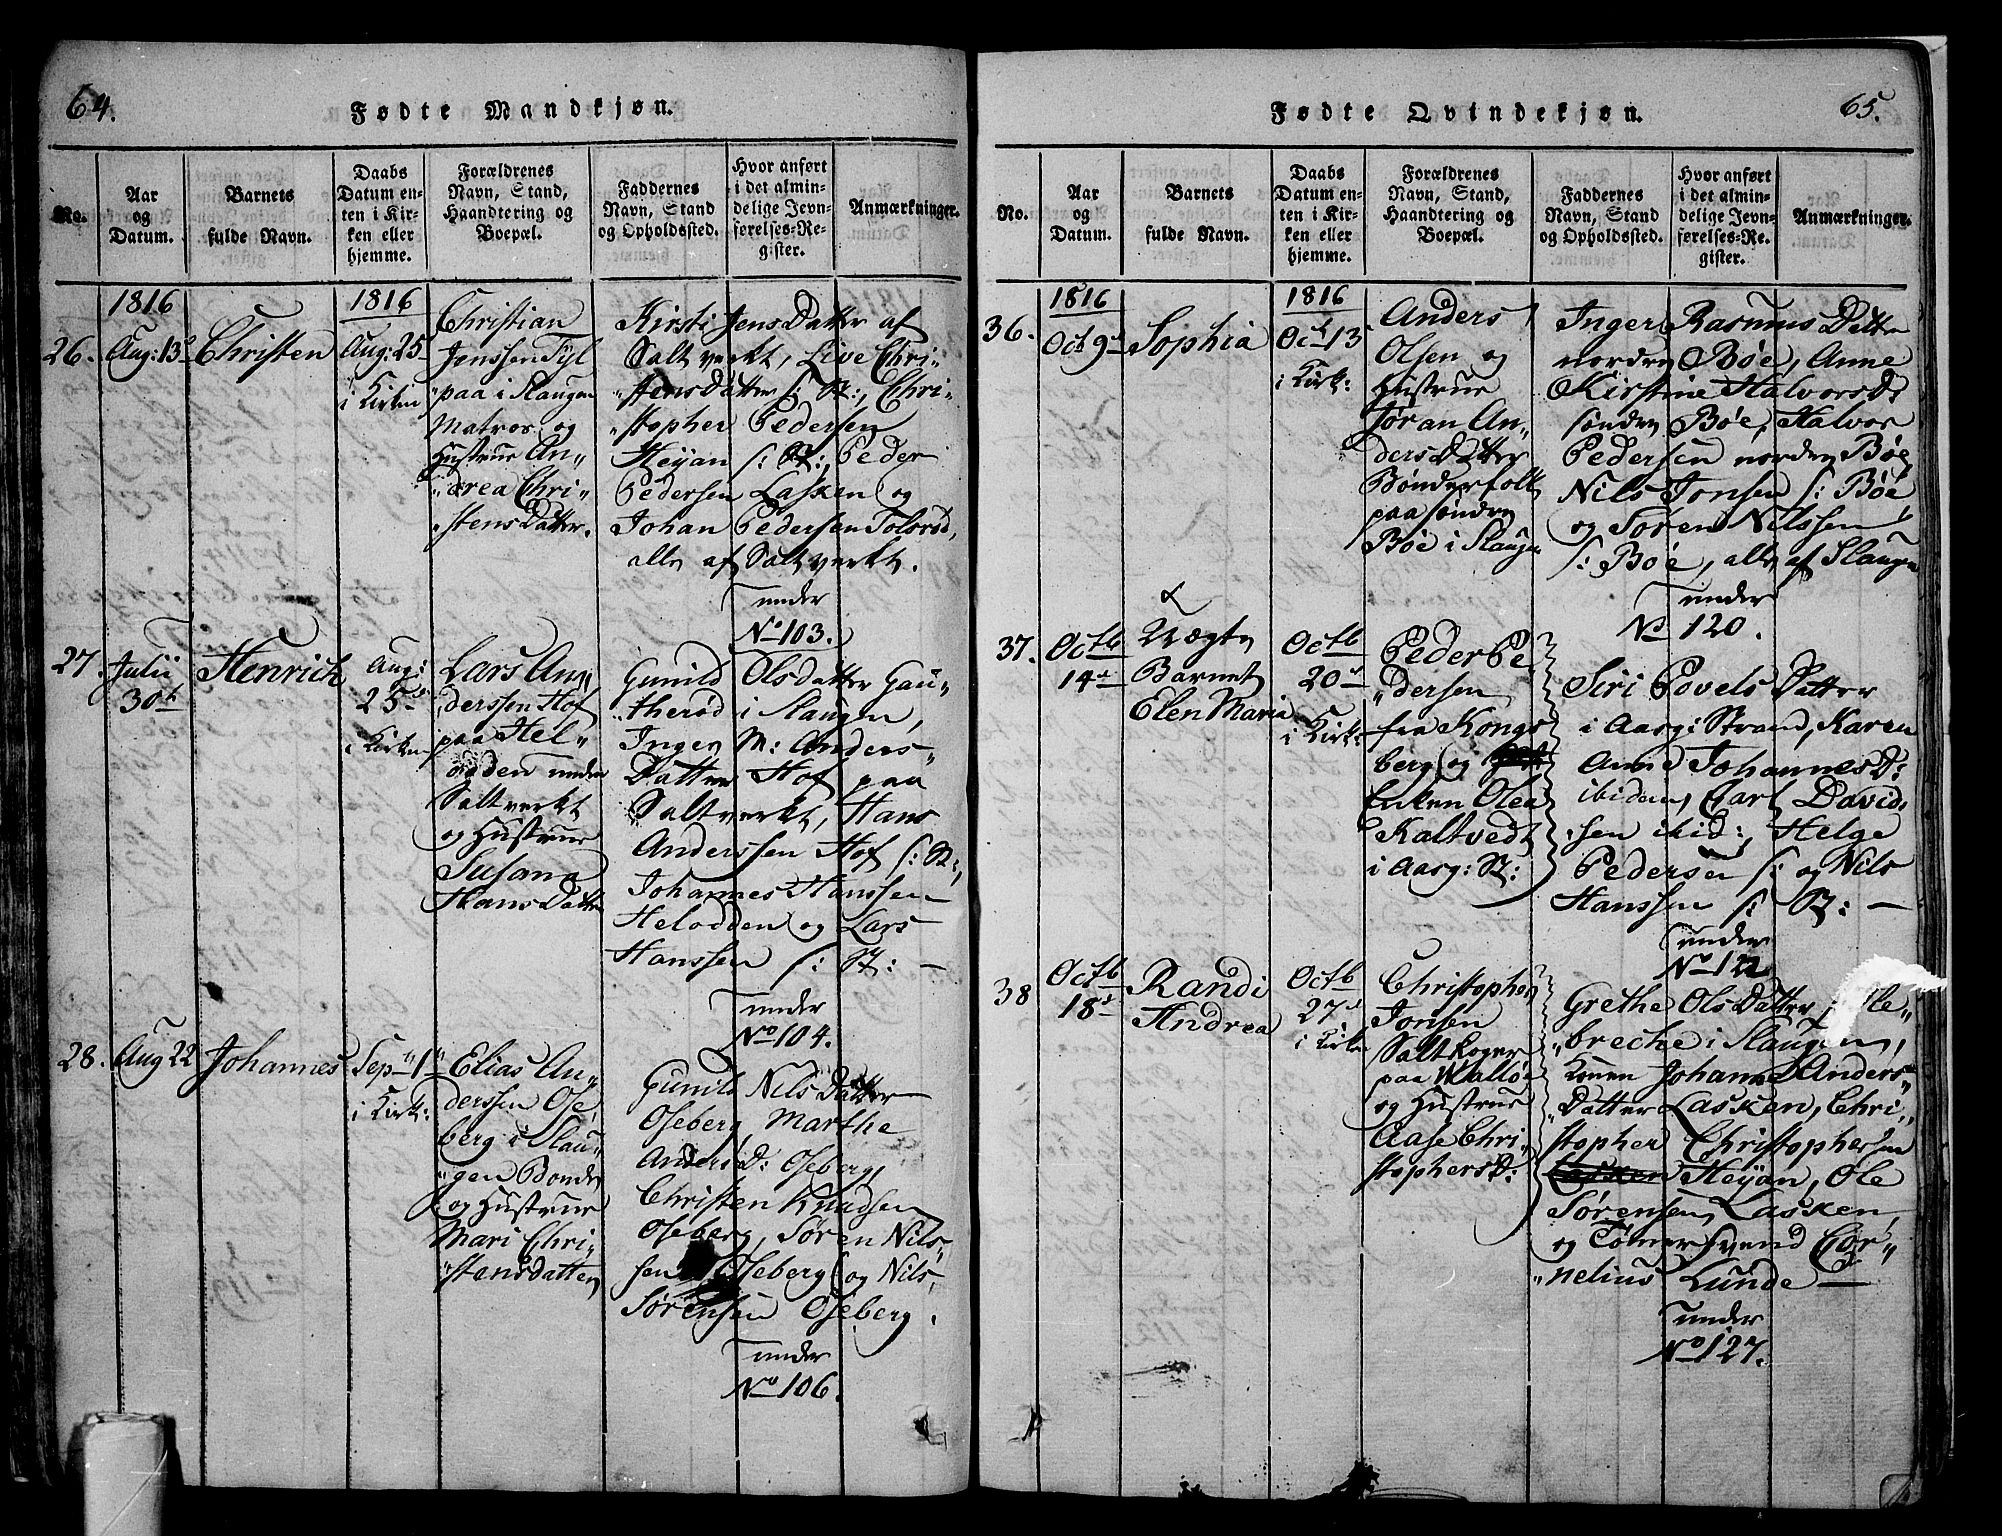 64.
Fødte Mandkjøn.
No.
Aar
og
Datum.
Barnets
fulde Navn.
Daabs
Datum en-
ten i Kir-
ken eller
hjemme.
Forældrenes
Navn, Stand,
Haandtering og
Boepæl.
Faddernes
Navn, Stand
og Opholdssted.
Hvor anført
i det almin-
delige Jevn-
førelses-Re-
gister.
Anmærkninger.
26.
1816
Aug: 13d
Christen
1816
Aug: 25
i Kirken
Christian
Jenssen
paa i Slaugen
Matros og
Hustrue An"
"drea Chri"
"stensDatter.
Kirsti JensDatter af
Saltverket, Live Chri"
"stensDatter S: St:, Chri"
"stopher Pedersen
Heÿan S: St:, Peder
Pedersen Lasken og
Johan Pedersen Tolsrød,
alle af Saltverket.
under
No 103.
27.
Julii
30te
Henrich
Aug:
25d
i Kirken
Lars An"
derssen Hof
paa Hel"
odden under
Saltverket
og Hustrue
Susana
HansDatter
Gunild OlsDatter Gau"
"therød i Slaugen,
Inger M: Anders"
Datter Hof paa
Saltverket, Hans
Anderssen Hof S: St:,
Johannes Hanssen
Helodden og Lars
Hanssen S: St: —
under
No 104.
28.
Aug 22
Johannes
Sep" 1"
i Kirk:
Elias An"
derssen Ose"
berg i Slau"
"gen Bonde
og Hustrue
Mari Chri"
"stensdatter
Gunild NilsDatter
Oseberg, Marthe
Anders D: Oseberg,
Christen Knudsen
Oseberg, Søren Nils"
sen Oseberg og Nils
Sørensen Oseberg.
under
No 106.
65.
Fødte Qvindekjøn.
No.
Aar
og
Datum.
Barnets
fulde Navn.
Daabs
Datum en-
ten i Kir-
ken eller
hjemme.
Forældrenes
Navn, Stand,
Haandtering og
Boepæl.
Faddernes
Navn, Stand
og Opholdssted.
Hvor anført
i det almin-
delige Jevn-
førelses-Re-
gister.
Anmærkninger.
36.
1816
Oct 9d
Sophia
1816
Oct 13
i Kirk:
Anders
Olsen og
Hustrue
Jøran An"
dersDatter
Bønderfolk
paa søndre
Bøe i Slaugen
Inger Rasmus Datter
nordre Bøe, Anne
Kirstine HalvorsD:
søndre Bøe, Halvor
Pedersen nordre Bøe,
Nils Jonsen S: Bøe
og Søren Nilssen
S: Bøe, alle af Slaugen
under
No 120.
37.
Octb
14d
Uægte
Barnet
Elen Maria
Octb
20d
i Kirk:
Peder Pe"
"dersen
fra Kongs
berg og
Enken Olea
Kaltvedt
i Aasg: St:
Siri Povels Datter
i Aasg: Strand, Karen
Anne JohannesD:
ibidem, Carl David"
"sen ibid:, Helge
Pedersen S: og Nils
Hanssen S: St: —
under
No 122
38
Octb
18d
Randi
Andrea
Octb
27d
i Kirken
Christopher
Jonsen
Saltkoger
paa Walløe
og Hustrue
Aase Chri"
stophersD:
Grethe OlsDatter
"breche i Slaugen,
Konen Johanne Anders"
"Datter Lasken, Chri"
stopher Christophersen
Heÿan, Ole
Sørensen Lasken,
og Tømersvend Cor"
"nelius Lunde —
under
No 127.